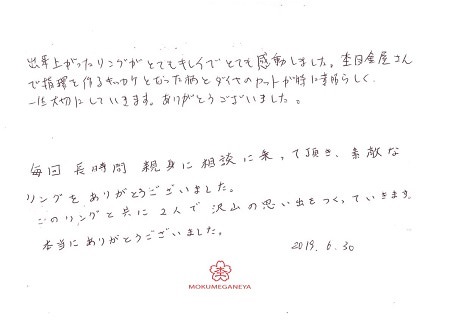 出来上がったリングがとてもキレイでとても感動しました。杢目金屋さん
で指環を作るキッカケとなった柄とダイヤのカットが特に素晴らしく
一生大切にしていきます。ありがとうございました。
毎回 長時間 親身に相談に乗って頂き、素敵な
リングをありがとうございました。
このリングと共に2人で沢山の思い出をつくっていきます。
本当にありがとうございました。
2019. 6. 30
MOKUMEGANEYA